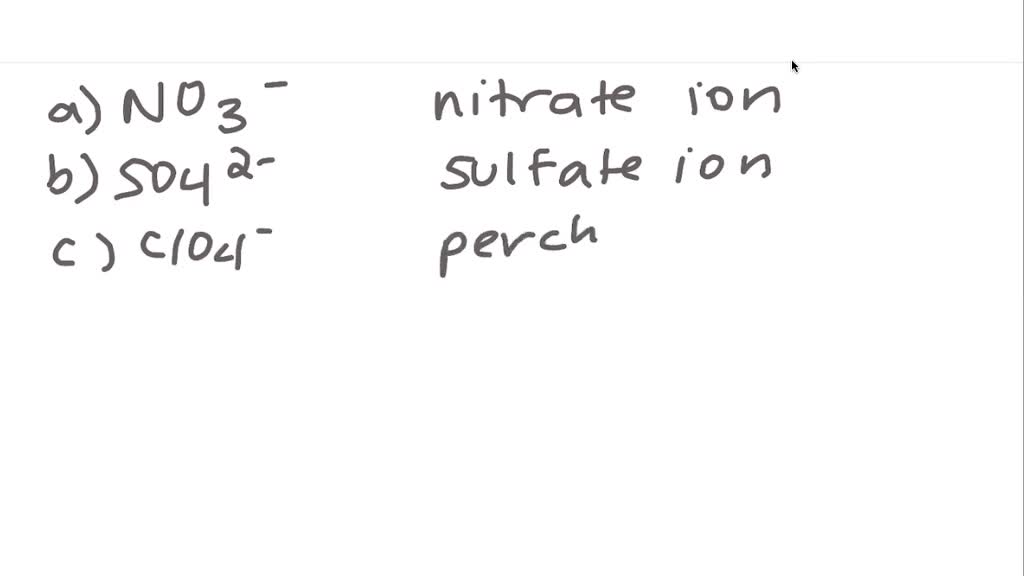 a) NO3- nitrate ion
b) SO4 2- sulfate ion
c) ClO4- perch